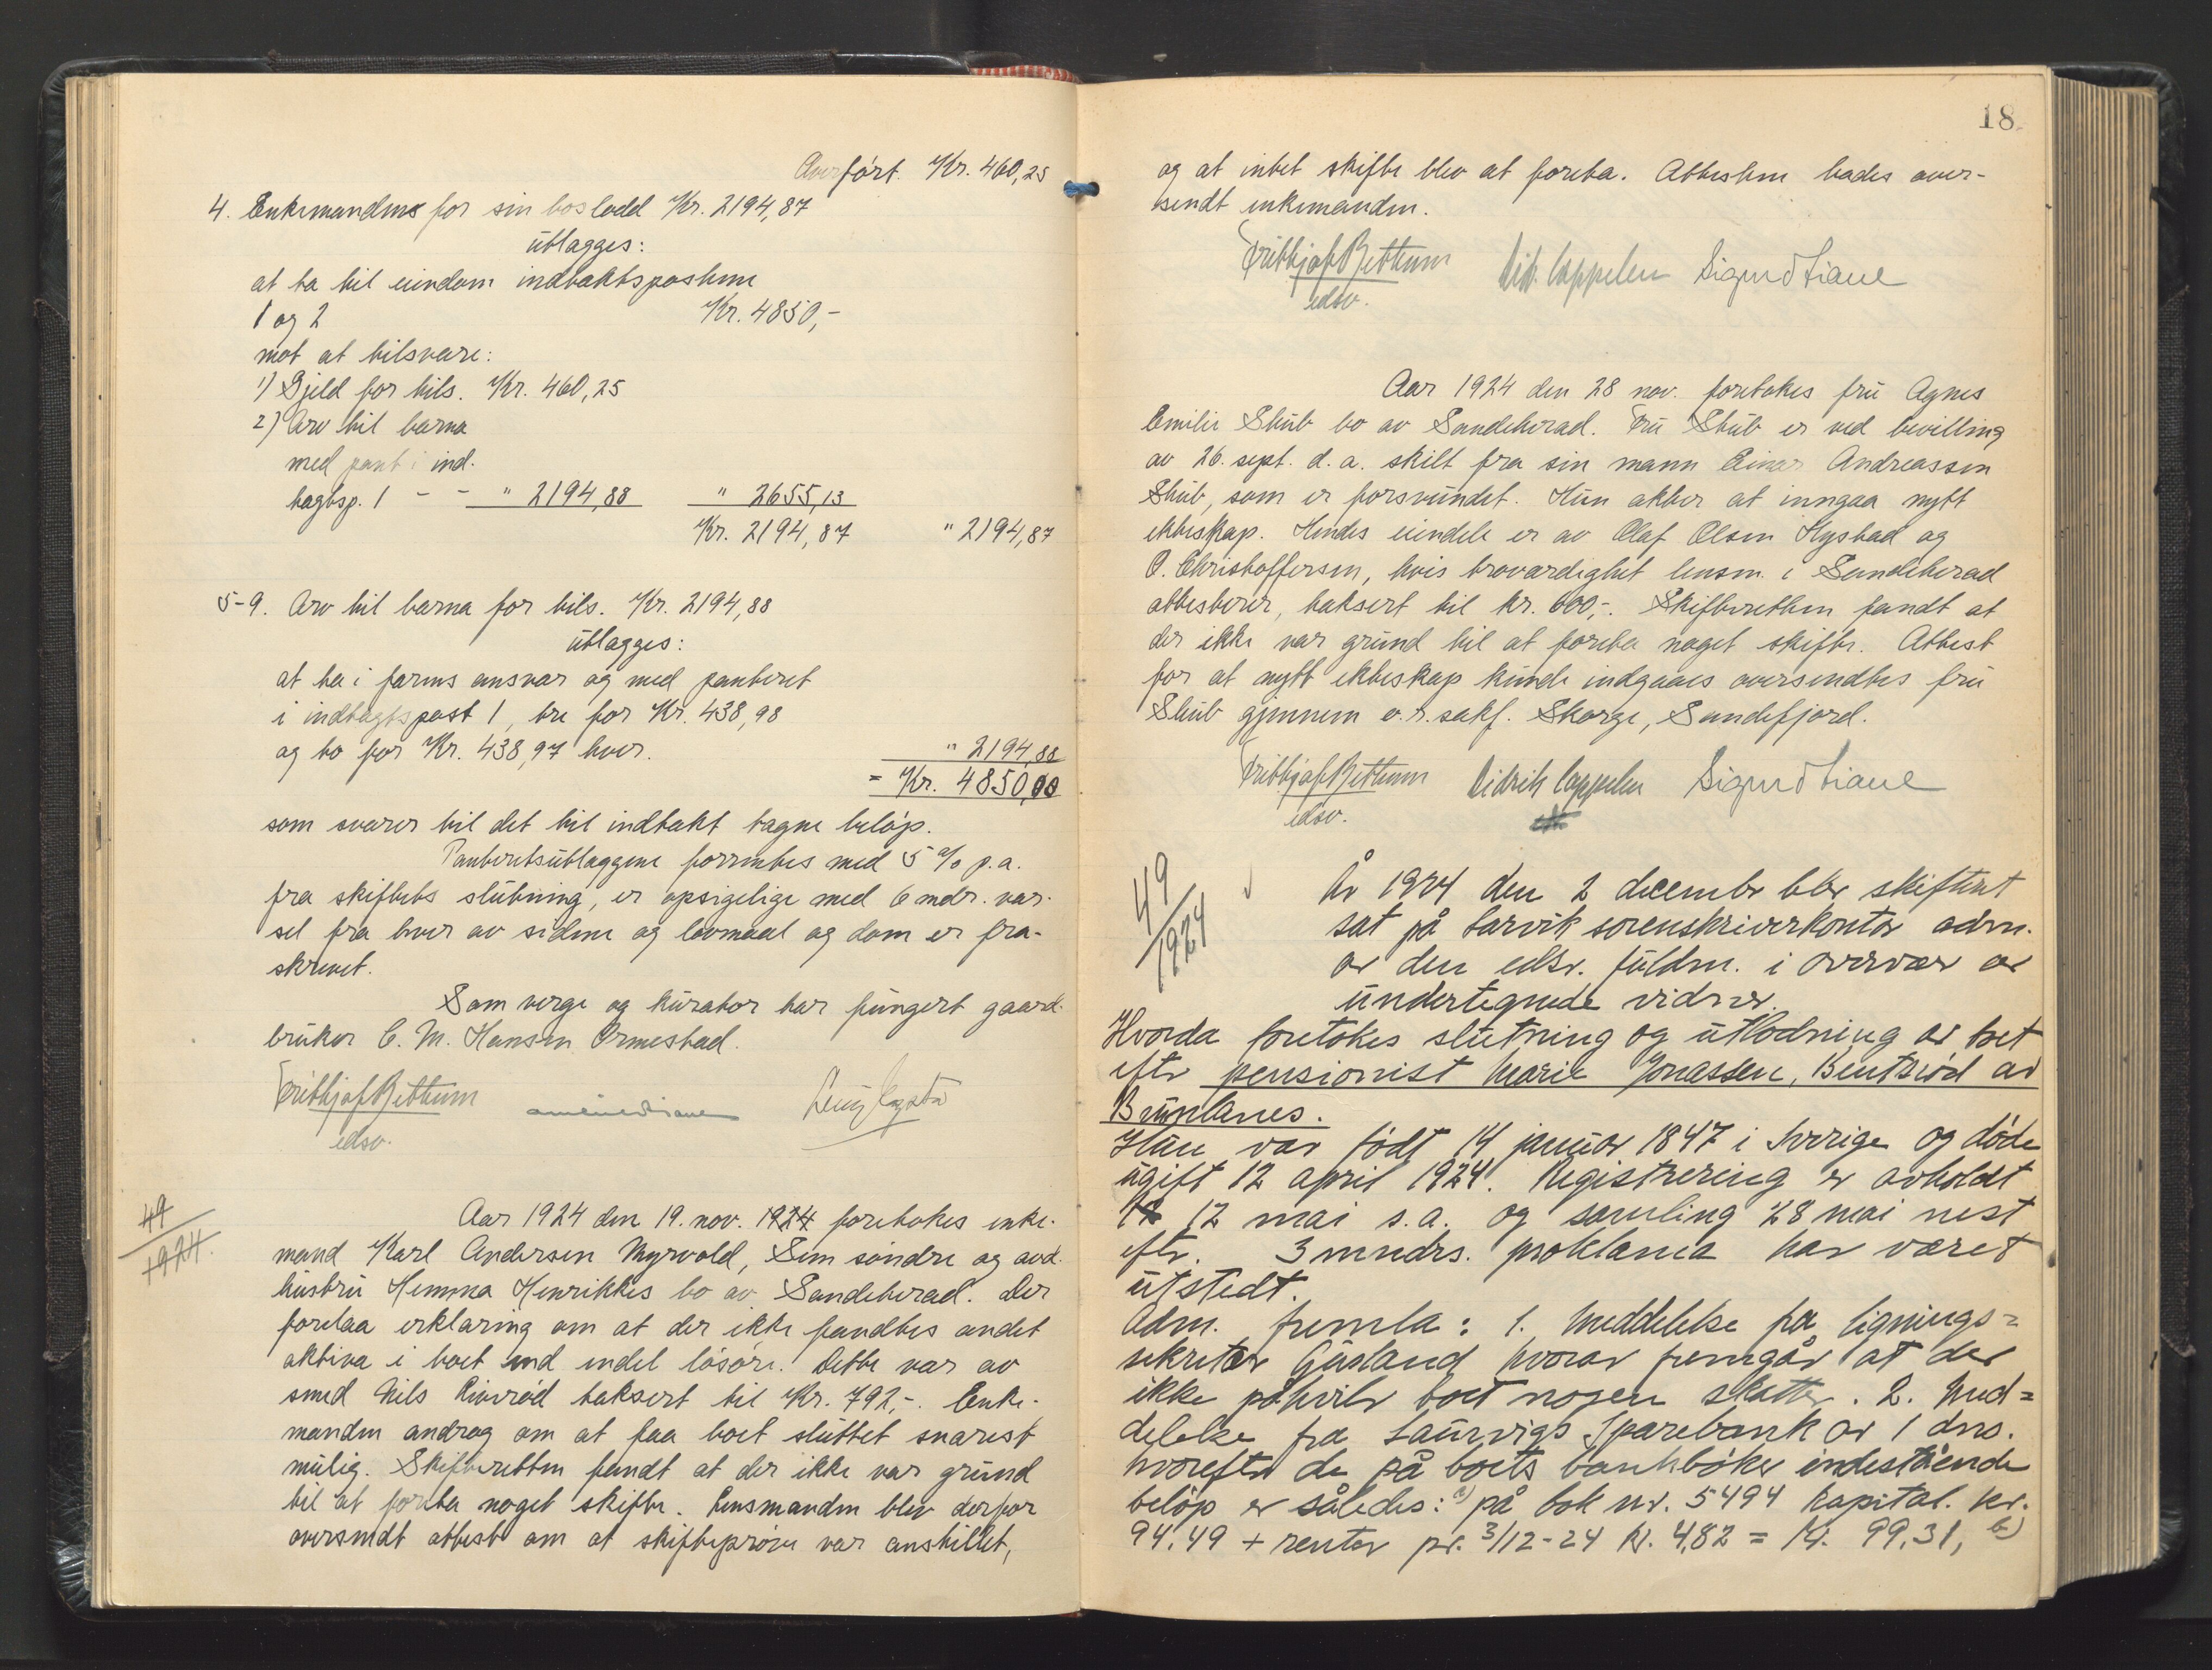 Overført. Kr. 460,25
4. Enkemandens for sin boslodd Kr. 2194,87
utlægges:
at ta til eiendom indtaktsposterne
1 og 2 Kr. 4850,-
mot at tilsvare:
1) Gjeld for tils. Kr. 460,25
2) Arv til barna
med pant i ind.
tagtsp. 1 - - " 2194,88 " 2655,13
Kr. 2194,87 " 2194,87
5-9. Arv til barna for tils. Kr. 2194,88
utlægges:
at ta i farens ansvar og med panteret
i indtagtspost 1, tre for Kr. 438,98
og to for Kr. 438,97 hver. " 2194,88
= Kr. 4850,00
som svarer til det til indtakt tagne beløp.
Panteretsutlæggene forrentes med 5 % p.a.
fra skiftets slutning, er opsigelige med 6 mdr. var-
sel fra hver av sidene og lovmaal og dom er fra-
skrevet.
Som verge og kurator har fungert gaard-
bruker C. M. Hansen Ormestad.
Fritthjof Bettum
edsv.
49
1924.
Aar 1924 den 19. nov. 1924 foretokes enke-
mand Karl Andersen Myrvold, Sem søndre og avd.
hustru Hemma Henrikkes bo av Sandeherad. Der
forelaa erklæring om at der ikke fandtes andet
aktiva i boet end endel løsøre. Dette var av
smed Nils takseret til Kr. 792,-. Enke-
manden androg om at faa boet sluttet snarest
mulig. Skifteretten fandt at der ikke var grund
til at foreta noget skifte. Lensmanden blev derfor
oversendt attest om at skifteprøve var anstillet,
18.
og at intet skifte blev at foreta. Attesten bades over-
sendt enkemanden.
Fritthjof Bettum Did. Cappelen Sigurd Liane
edsv.
Aar 1924 den 28 nov. foretokes fru Agnes
Emilie Stub bo av Sandeherad. Fru Stub er ved bevilling
av 26. sept. d.a. skilt fra sin mann Einar Andreassen
Stub, som er forsvundet. Hun akter at inngaa nytt
ekteskap. Hendes eiendele er av Olaf Olsen Hystad og
O. Christoffersen, hvis troværdighet lensm. i Sandeherad
attesterer, taksert til kr. 600,-. Skifteretten fandt at
der ikke var grund til at foreta noget skifte. Attest
for at nytt ekteskap kunde indgaaes oversendtes fru
Stub gjennem o.r.sakf. Skorge, Sandefjord.
Fritthjof Bettum Didrik Cappelen Sigurd Liane
edsv.
49
1924
År 1924 den 2 december blev skifteret
sat på Larvik sorenskriverkontor adm.
av den edsv. fuldm. i overvær av
undertegnede vidner.
Hvorda foretokes slutning og utlodning av boet
efter pensionist Marie Jonassen, Bentsrød av
Brunlanes.
Hun var født 14 januar 1847 i Sverige og døde
ugift 12 april 1924. Registrering er avholdt
12 mai s.a. og samling 28 mai nest
eftr. 3 mndrs. proklama har været
utstedt.
Adm. fremla: 1. Meddelelse fra lignings=
sekretær Gusland hvorav fremgår at der
ikke påhviler boet nogen skatter. 2. Med=
delelse fra Laurvigs Sparebank av 1 dns.
hvorefter de på boets bankbøker indestående
beløp er således: a) på bok nr. 5494 kapital. kr.
94.49 + renter pr. 3/12-24 kr. 4,82 = kr. 99.31, b)